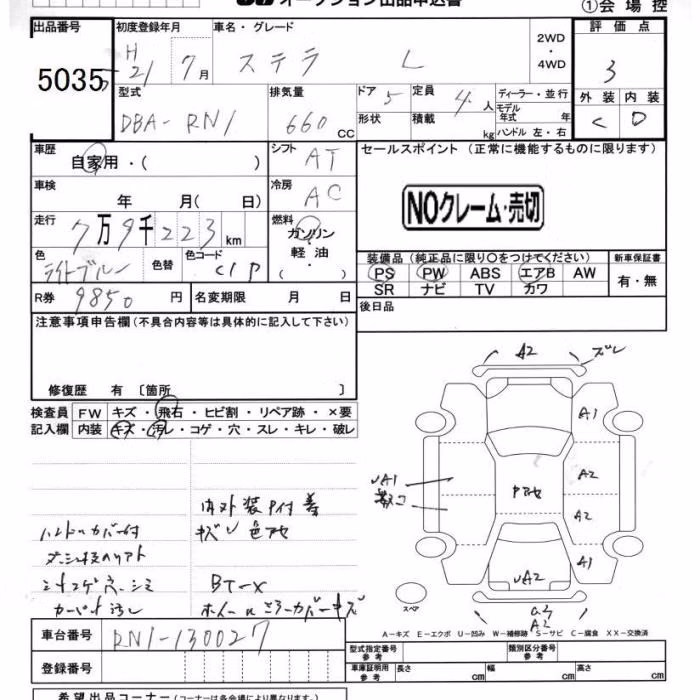 オークション出品申込書
①会場控
出品番号 初度登録年月 車名・グレード 2WD ・ 4WD 評価点
5035 H21 7月 ステラ L 3
型式 排気量 ドア 定員 ディーラー・並行 外装 内装
DBA-RN1 660CC 5 4人 モデル年式 年 C D
形状 積載 kg ハンドル 左・右
車歴 シフト セールスポイント (正常に機能するものに限ります)
自家用・( ) AT
車検 冷房
年 月( 日) AC
NOクレーム・売切
走行 燃料
7万9千223km ガソリン・軽油・( )
色 色替 色コード 装備品 (純正品に限り○をつけてください) 新車保証書
ライトブルー C1P PS PW ABS エアB AW 有・無
SR ナビ TV カワ
R券 9850円 名変期限 月 日 後日品
注意事項申告欄 (不具合内容等は具体的に記入して下さい)
修復歴 有 〔箇所 〕
検査員 FW キズ・飛石・ヒビ割・リペア跡・×要
記入欄 内装 キズ・汚レ・コゲ・穴・スレ・キレ・破レ
A2 ズレ
A1
A2
A2
A1
UA1
UA2
A2
スペア
ハンドルカバー付 キズ 色アセ
カーペット汚レ
A-キズ E-エクボ U-凹み W-補修跡 S-サビ C-腐食 XX-交換済
車台番号 RN1-130027
型式指定番号 参考 類別区分番号 参考
登録番号 車庫証明用 参考 長さ cm 幅 cm 高さ cm
希望出品コーナー (コーナーは各会場により異なります。)